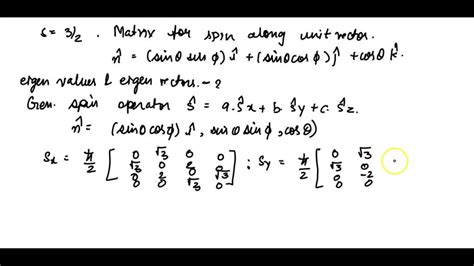 s = 3/2 . Matrix for spin along unit vector.
n̂ = (sinθ sinφ) î + (sinθ cosφ) ĵ + cosθ k̂.
eigen values & eigen vectors. - ?
Gen. spin operator Ŝ = a.Ŝx + b. Ŝy + c. Ŝz.
n̂ = (sinθ cosφ) î , sinθ sinφ , cosθ)
Sx = ħ/2 [ 0 √3 0 0 ; Sy = ħ/2 [ 0 √3
√3 0 2 0 √3 0
0 2 0 √3 0 -2
0 0 √3 0 ] 0 0